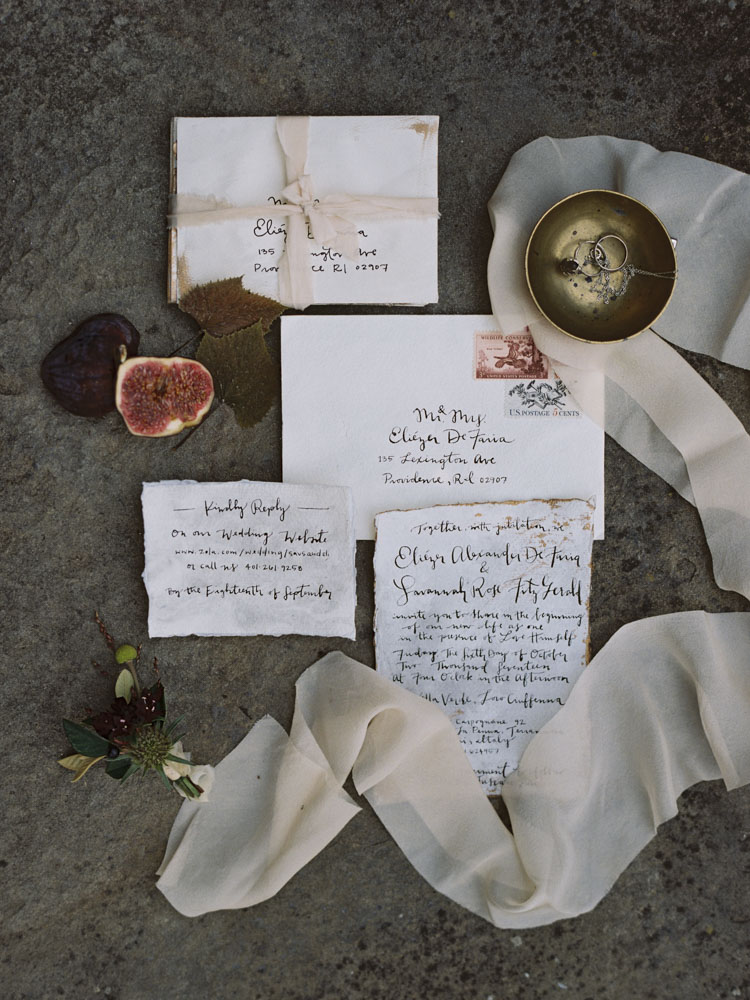 Eliézer De Faria
135 Lexington Ave
Providence RI 02907
WILDLIFE CONSERV
UNITED STATES POSTAGE
US POSTAGE 5 CENTS
Mr. & Mrs.
Eliézer De Faria
135 Lexington Ave
Providence, R.I 02907
Kindly Reply
On our Wedding Website
www.zola.com/wedding/savsandeli
or call us 401 261 9258
by the Eighteenth of September
Together with jubilation we
Eliézer Alexander De Faria
&
Savannah Rose FitzGerald
invite you to share in the beginning
of our new life as one
in the presence of Love Himself
Friday The Sixth Day of October
Two Thousand Seventeen
At Four O'clock in the Afternoon
lla Verde, Loro Ciuffenna
92